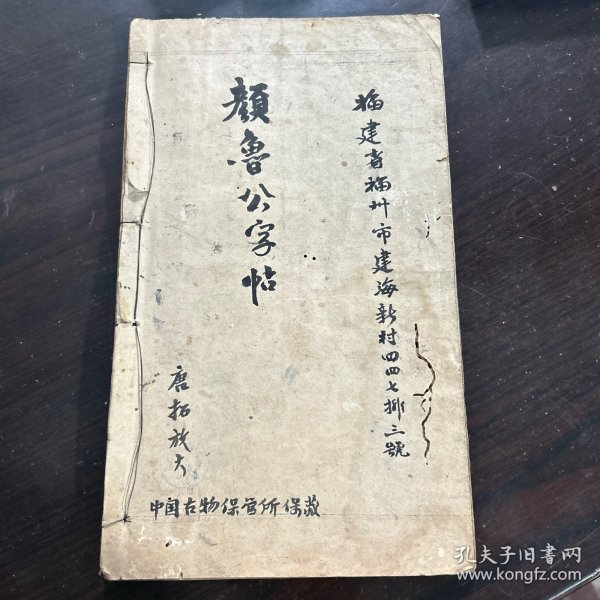 福建省福州市建海新村四四七排三號
顏魯公字帖
唐拓放大
中国古物保管所保藏
孔夫子旧书网
www.kongfz.com